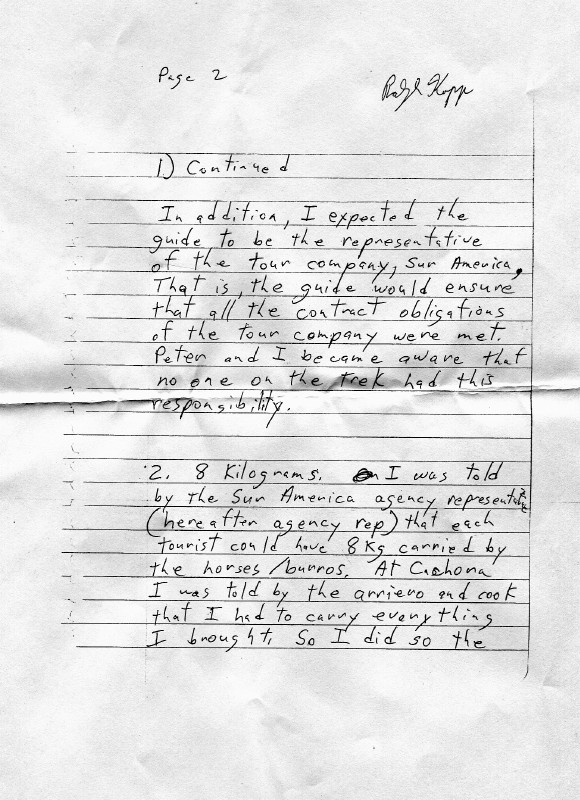 Page 2
Ralph Kopp
1.) Continued
In addition, I expected the
guide to be the representative
of the tour company, Sur America,
That is, the guide would ensure
that all the contract obligations
of the tour company were met.
Peter and I became aware that
no one on the trek had this
responsibility.
2. 8 Kilograms. I was told
by the Sur America agency representative
(hereafter agency rep) that each
tourist could have 8 Kg carried by
the horses/burros. At Cachona
I was told by the arriero and cook
that I had to carry everything
I brought. So I did so the